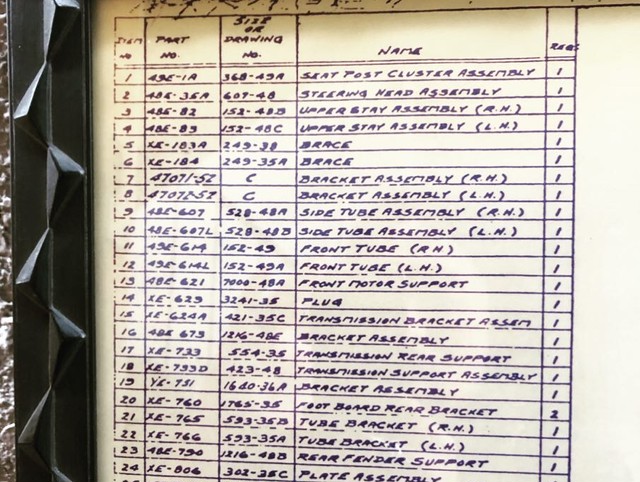 ITEM NO. PART NO. SIZE OR DRAWING NO. NAME REQ.
1 49E-1A 368-49A SEAT POST CLUSTER ASSEMBLY 1
2 48E-35A 607-48 STEERING HEAD ASSEMBLY 1
3 48E-82 152-48B UPPER STAY ASSEMBLY (R.H.) 1
4 48E-83 152-48C UPPER STAY ASSEMBLY (L.H.) 1
5 XE-183A 249-38 BRACE 1
6 XE-184 249-35A BRACE 1
7 47071-52 C BRACKET ASSEMBLY (R.H.) 1
8 47072-52 C BRACKET ASSEMBLY (L.H.) 1
9 48E-607 528-48A SIDE TUBE ASSEMBLY (R.H.) 1
10 48E-607L 528-48B SIDE TUBE ASSEMBLY (L.H.) 1
11 49E-614 152-49 FRONT TUBE (R.H.) 1
12 49E-614L 152-49A FRONT TUBE (L.H.) 1
13 48E-621 7000-48A FRONT MOTOR SUPPORT 1
14 XE-623 3241-35 PLUG 1
15 XE-624A 421-35C TRANSMISSION BRACKET ASSEM 1
16 48E 673 1216-48E BRACKET ASSEMBLY 1
17 XE-733 554-35 TRANSMISSION REAR SUPPORT 1
18 XE-733D 423-48 TRANSMISSION SUPPORT ASSEMBLY 1
19 YE-751 1640-36A BRACKET ASSEMBLY 1
20 XE-760 1765-35 FOOT BOARD REAR BRACKET 2
21 XE-765 593-35B TUBE BRACKET (R.H.) 1
22 XE-766 593-35A TUBE BRACKET (L.H.) 1
23 48E-790 1216-48B REAR FENDER SUPPORT 1
24 XE-806 302-35C PLATE ASSEMBLY 1